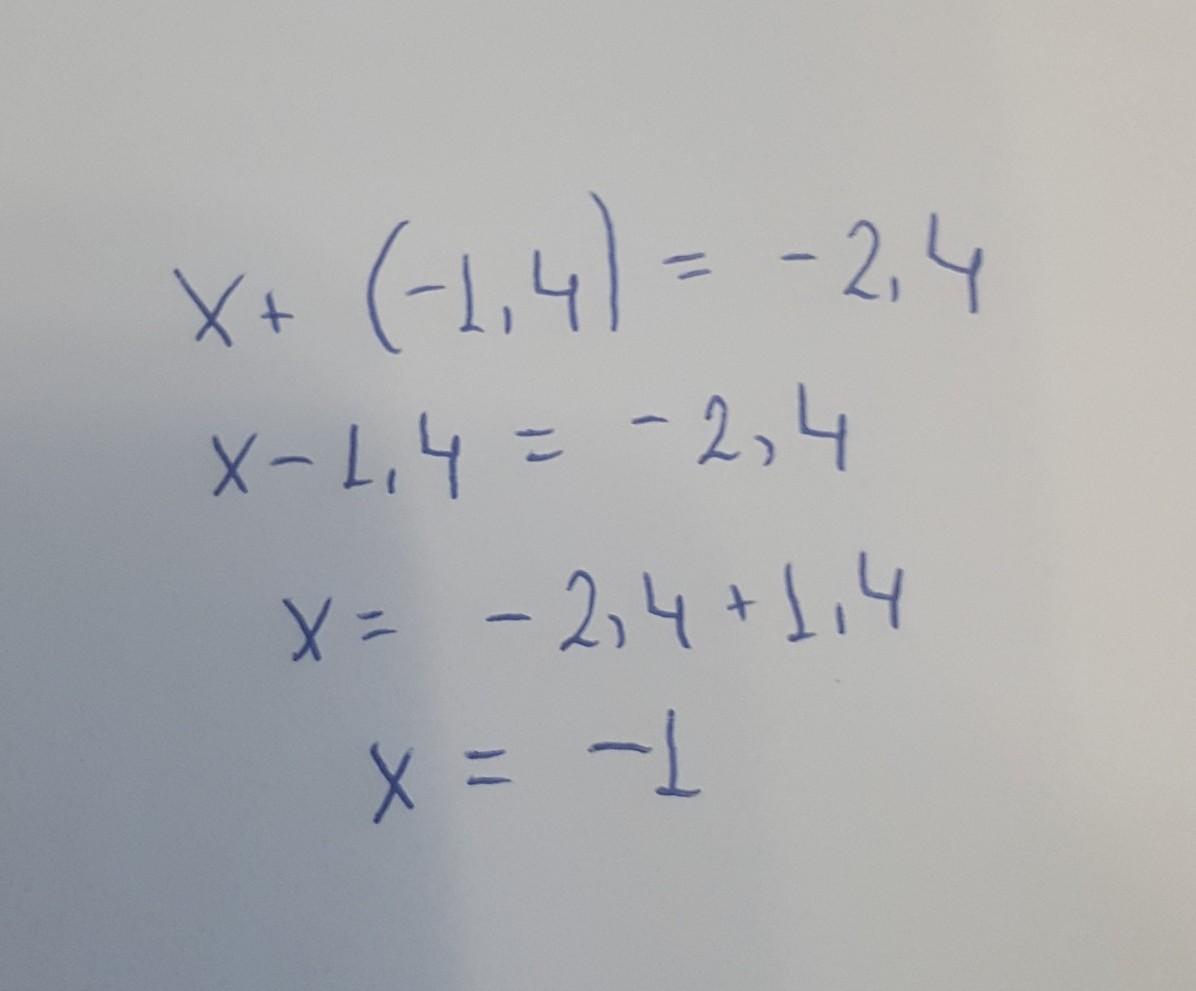 x + (-1,4) = -2,4
x - 1,4 = -2,4
x = -2,4 + 1,4
x = -1